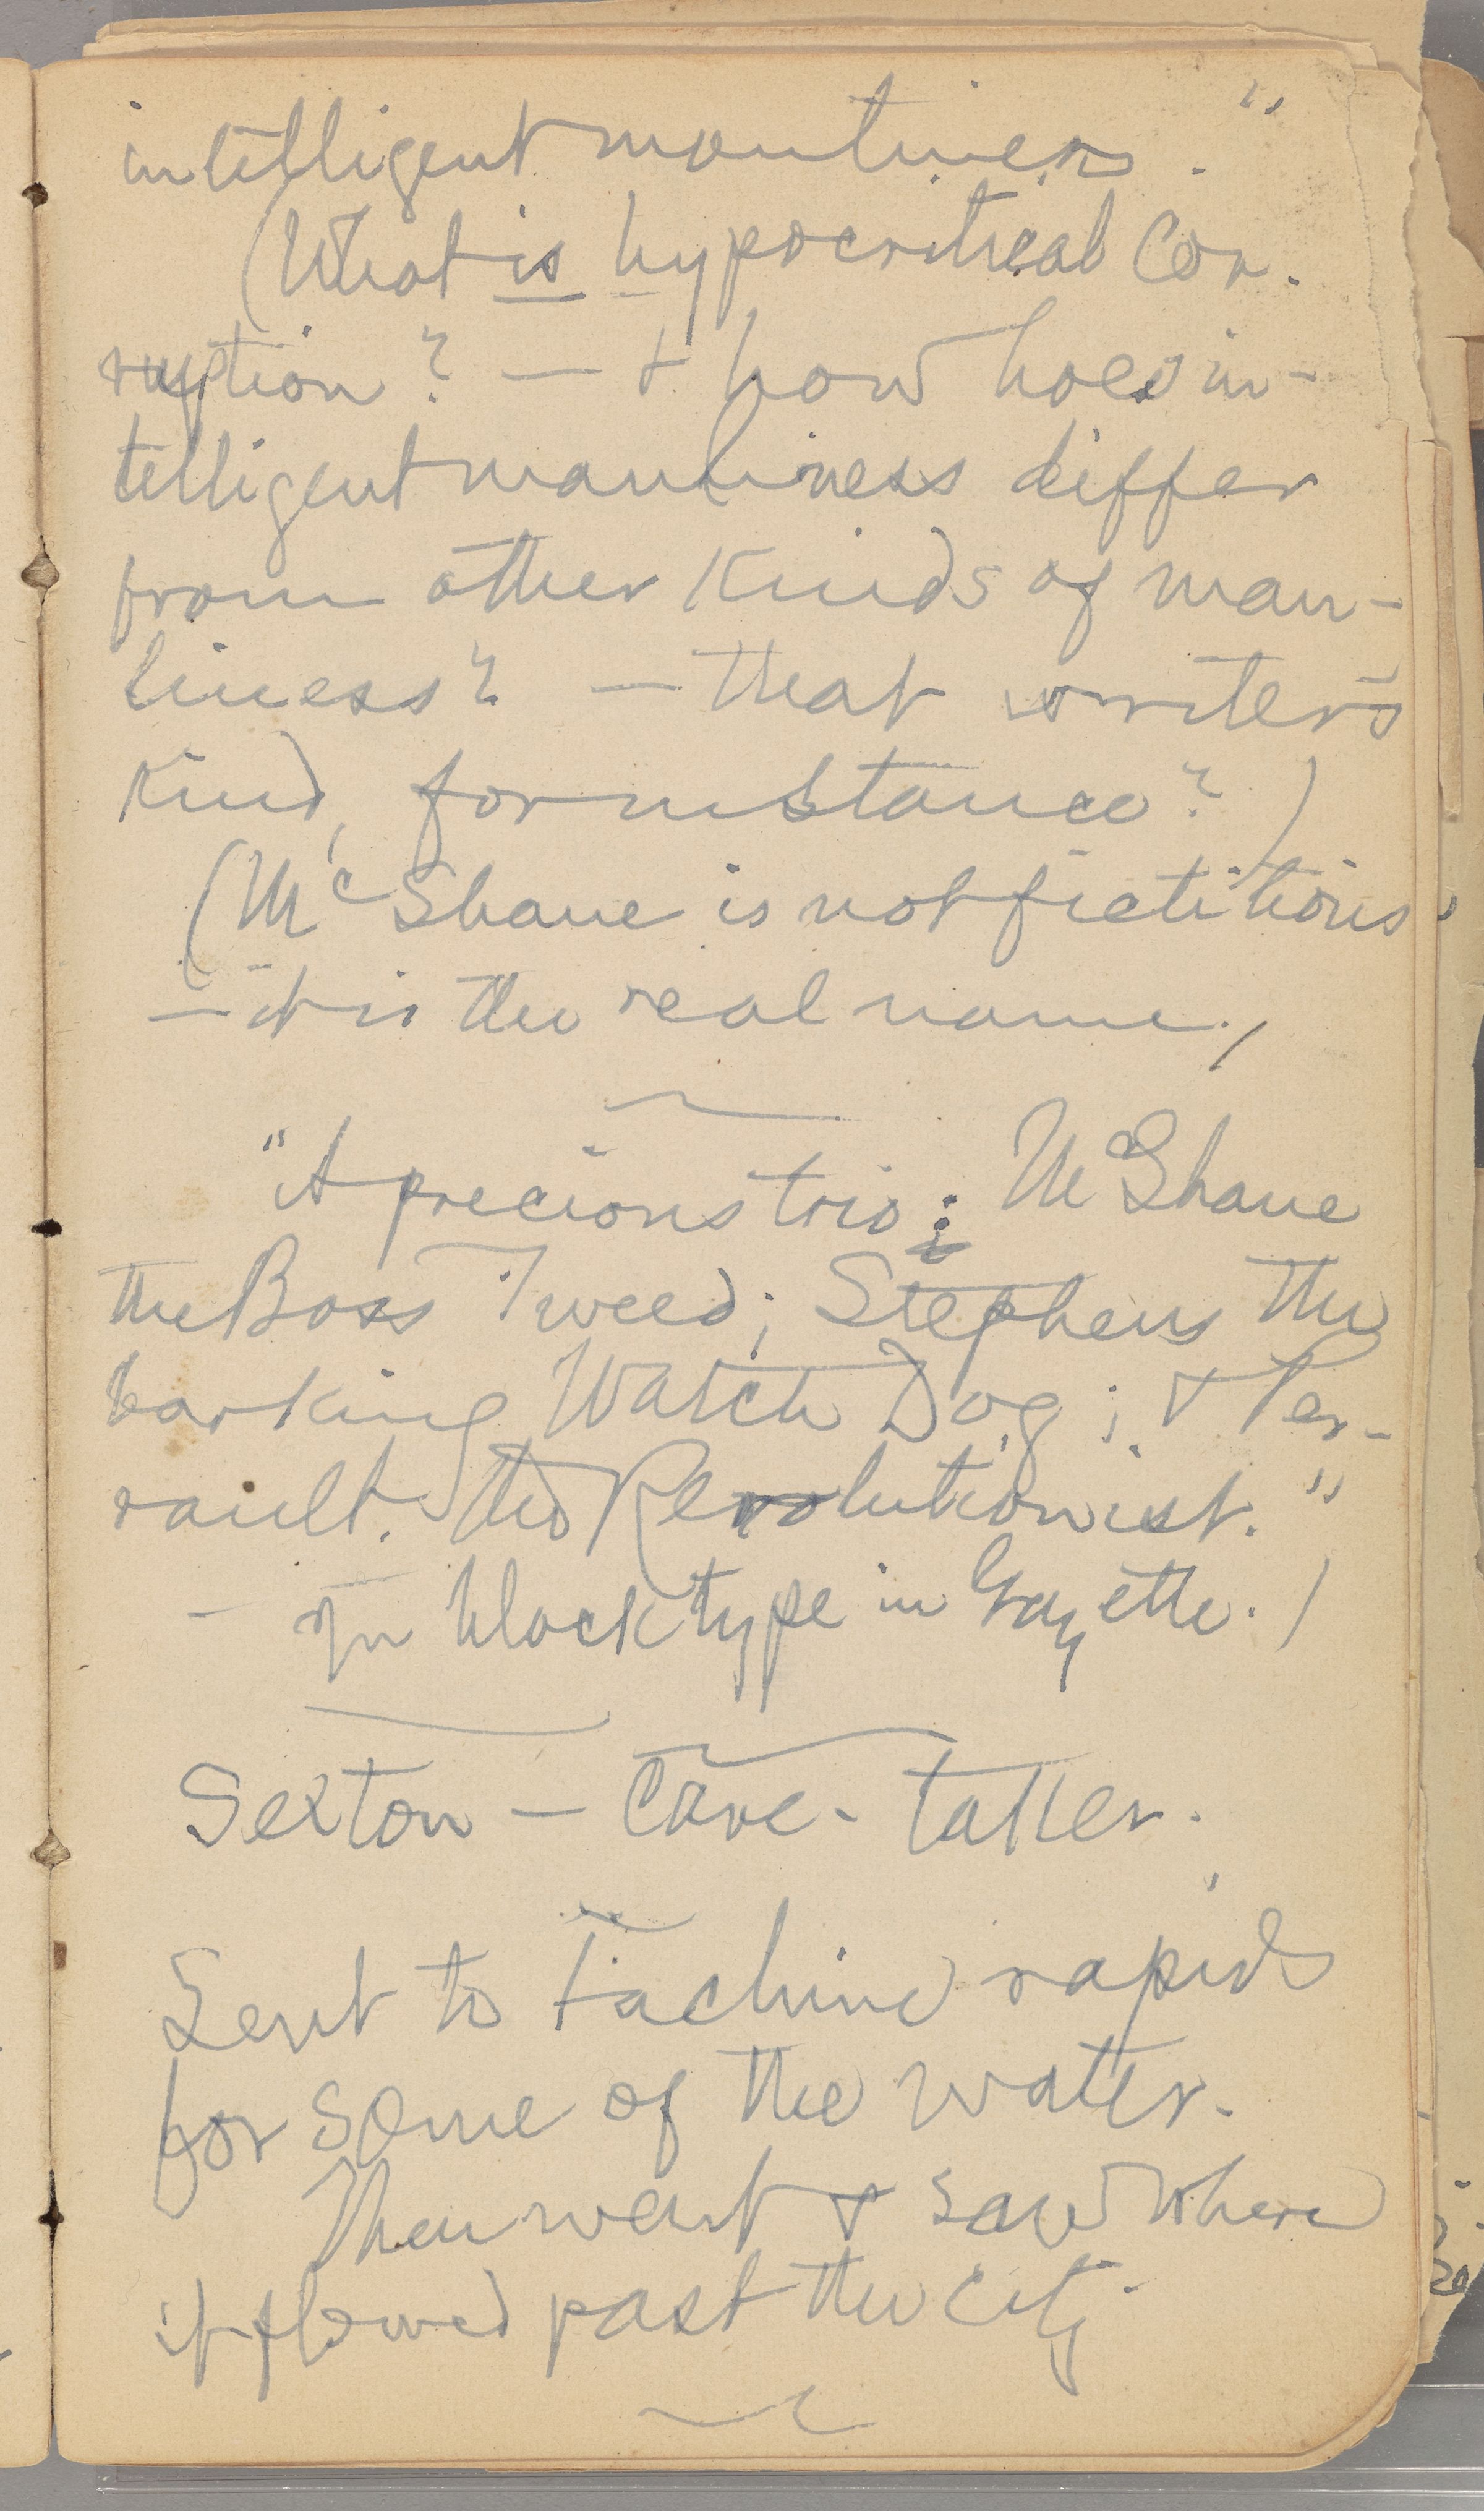 intelligent manliness."
(What is hypocritical Cor-
ruption? — & how does in-
telligent manliness differ
from other kinds of man-
liness? — that writer's
kind, for instance?)
(McShane is not fictitious
— it is the real name.)
"A precious trio: McShane
the Boss Tweed; Stephens the
barking Watch Dog; & Per-
rault the Revolutionist."
— In block type in Gazette.)
Sexton — Care-taker.
Sent to Lachine rapids
for some of the water.
Then went & saw where
it flowed past the city.